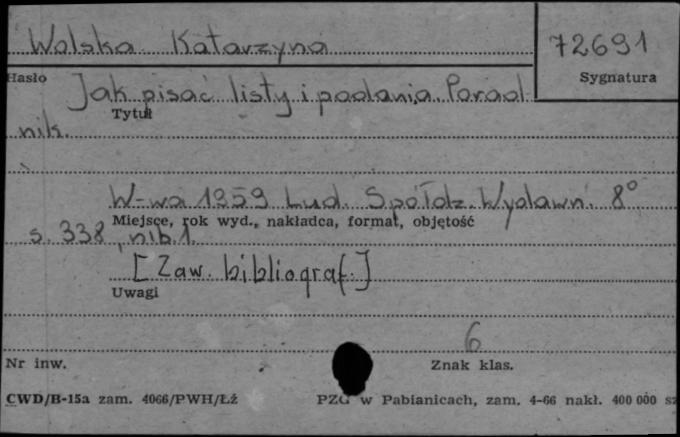 Wolska Katarzyna
72691
Hasło
Sygnatura
Jak pisać listy i podania. Porad
Tytuł
nik.
W-wa 1959 Lud. Spółdz. Wydawn. 8°
Miejsce, rok wyd., nakładca, format, objętość
s. 338, nlb 1.
[Zaw. bibliograf.]
Uwagi
6
Nr inw.
Znak klas.
CWD/B-15a zam. 4066/PWH/Łź
PZG w Pabianicach, zam. 4-66 nakł. 400 000 sz